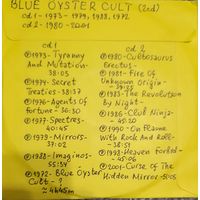 BLUE OYSTER CULT (2cd)
cd 1 - 1973 - 1979, 1988, 1972
cd 2 - 1980 - 2001
cd 1
1973 - Tyranny
And Mutation -
38:05
1974 - Secret
Treaties - 38:37
1976 - Agents Of
Fortune - 36:30
1977 - Spectres -
40:45
1979 - Mirrors -
37:02
1988 - Imaginos -
55:54
1972 - Blue Oyster
Cult - ?
≈ 4h45m
cd 2
1980 - Cultosaurus
Erectus -
1981 - Fire Of
Unknown Origin -
1983 - The Revolution
By Night -
1986 - Club Ninja -
45:20
1990 - On Flame
With Rock And Roll -
38:51
1998 - Heaven Forbid -
45:06
2001 - Curse Of The
Hidden Mirror -